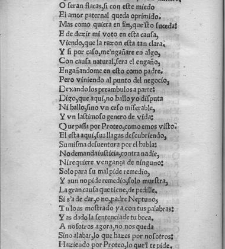 O seran flacas, si con este miedo
El amor paternal queda oprimido.
Mas como quiera en fin, que esto suceda
E de dezir mi voto en esta causa,
Viendo, que la razon esta tan clara,
Y si por caso, me engañare en algo,
Con causa natural, sera el engaño,
Engañandome en esto como padre.
Pero viniendo al punto del negocio,
Dexando los preambulos a parte:
Digo, que aqui, no hallo yo disputa
Ni hallo, sino vn caso miserable,
Y vn genero de vida:
Que passa por Proteo, como emos visto.
El esta aqui, sus llagas descubriendo,
Su misma desventura por el habla:
No demanda justicia, contra nadie,
Ni requiere vengança de ninguno:
Solo para su mal pide remedio,
Y aun no pide remedio, sino muestra
La gran causa que tiene, de pedille.
Si s'a de dar, o no, padre Neptuno,
Tu l'as mostrado ya con tus palabras:
Y as dado la sentencia de tu boca,
A nosotros agora, no nos queda
Sino alabar, lo que hazes por nosotros:
Haziendo por Proteo, lo que te pide.